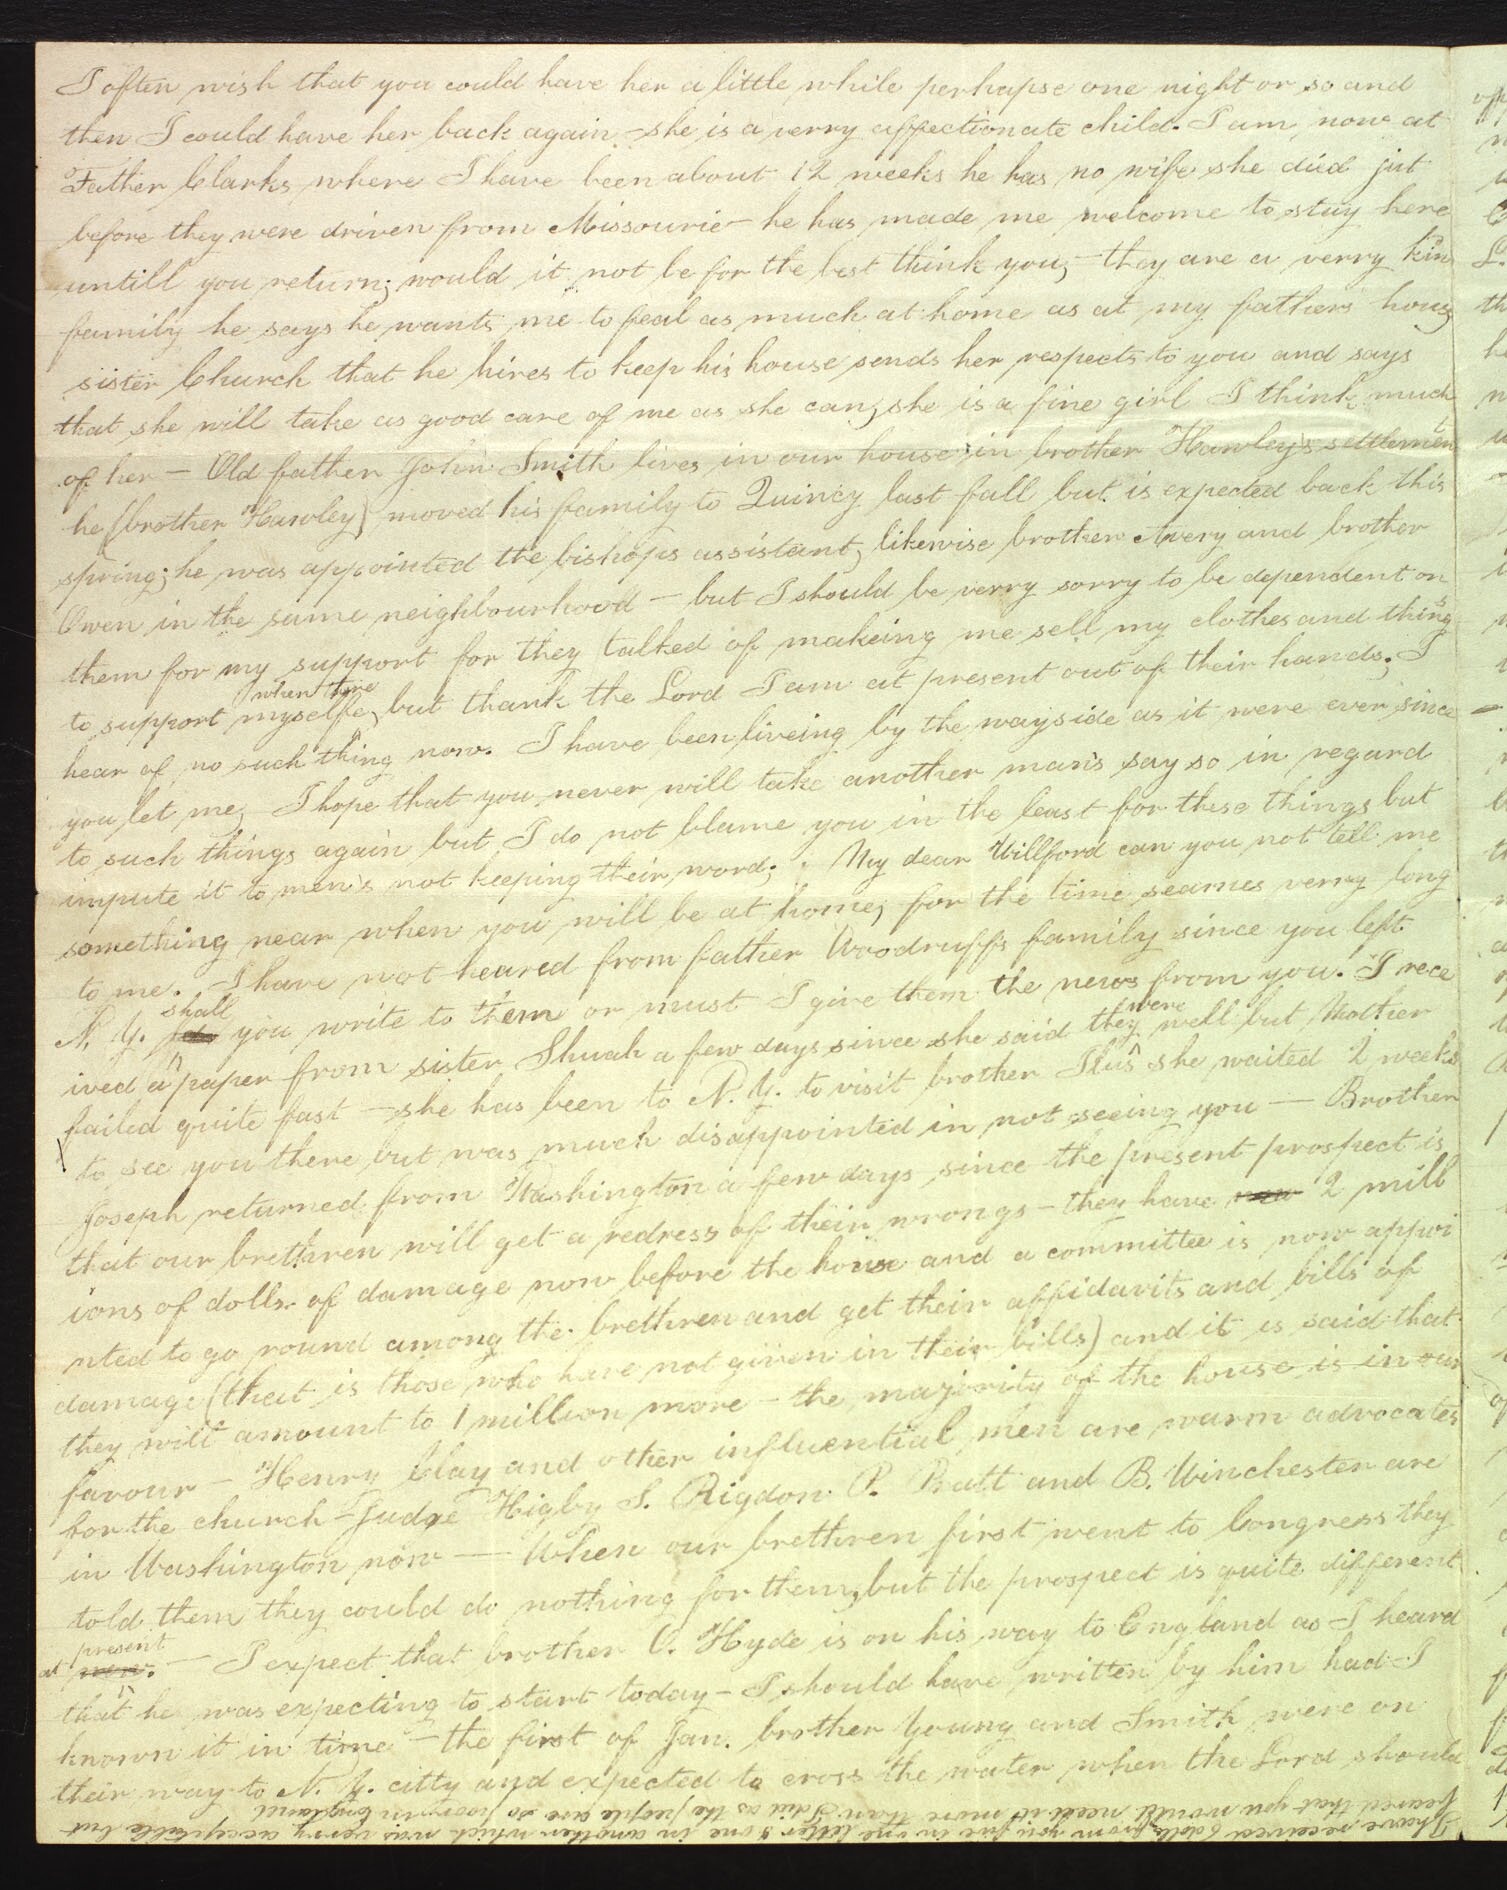 I often wish that you could have her a little while perhapse one night or so and
then I could have her back again – she is a verry affectionate child. I am now at
Father Clarks, where I have been about 12 weeks he has no wife she died jut
before they were driven from Missourie – he has made me welcome to stay here
untill you return; would it not be for the best think you, – they are a verry kin
family he says he wants me to feal as much at home as at my fathers hous
sister Church that he hires to keep his house sends her respects to you and says
that she will take as good care of me as she can, she is a fine girl I think much
of her – Old father John Smith lives in our house in brother Hawley's settlement
he (brother Hawley) moved his family to Quincy last fall but is expected back this
spring; he was appointed the bishops assistant, likewise brother Avery and brother
Owen in the same neighbourhood – but I should be verry sorry to be dependent on
them for my support for they talked of makeing me sell my clothes and things
to support myselfe, when there but thank the Lord I am at present out of their hands; I
hear of no such thing now. I have been liveing by the wayside as it were ever since
you let me, I hope that you never will take another man's say so in regard
to such things again but I do not blame you in the least for these things but
impute it to men's not keeping their word; . My dear Willford can you not tell me
something near when you will be at home, for the time seames verry long
to me. I have not heared from father Woodruffs family since you left
N. Y. shall you write to them or must I give them the news from you. I rece
ived a paper from sister Shuah a few days since she said they were well but Mother
failed quite fast – she has been to N. Y. to visit brother Ilus she waited 2 weeks
to see you there but was much disappointed in not seeing you — Brother
Joseph returned from Washington a few days since the present prospect is
that our brethren will get a redress of their wrongs – they have 2 mill
ions of dolls. of damage now before the house and a committee is now appoi
nted to go round among the brethren and get their affidavits and bills of
damage (that is those who have not given in their bills) and it is said that
they will amount to 1 million more – the majority of the house is in our
favour – Henry Clay and other influential men are warm advocates
for the church – Judge Higby S. Rigdon P. Pratt and B. Winchester are
in Washington now — When our brethren first went to Congress they
told them they could do nothing for them, but the prospect is quite different
at present now. – I expect that brother O. Hyde is on his way to England as I heard
that he was expecting to start today – I should have written by him had I
known it in time – the first of Jan. brother Young and Smith were on
their way to N. Y. citty and expected to cross the water when the Lord should
I have received 6 dolls from you five in one letter & one in another which was verry acceptable but
feared that you would need it more than I did as the people are so poor in England